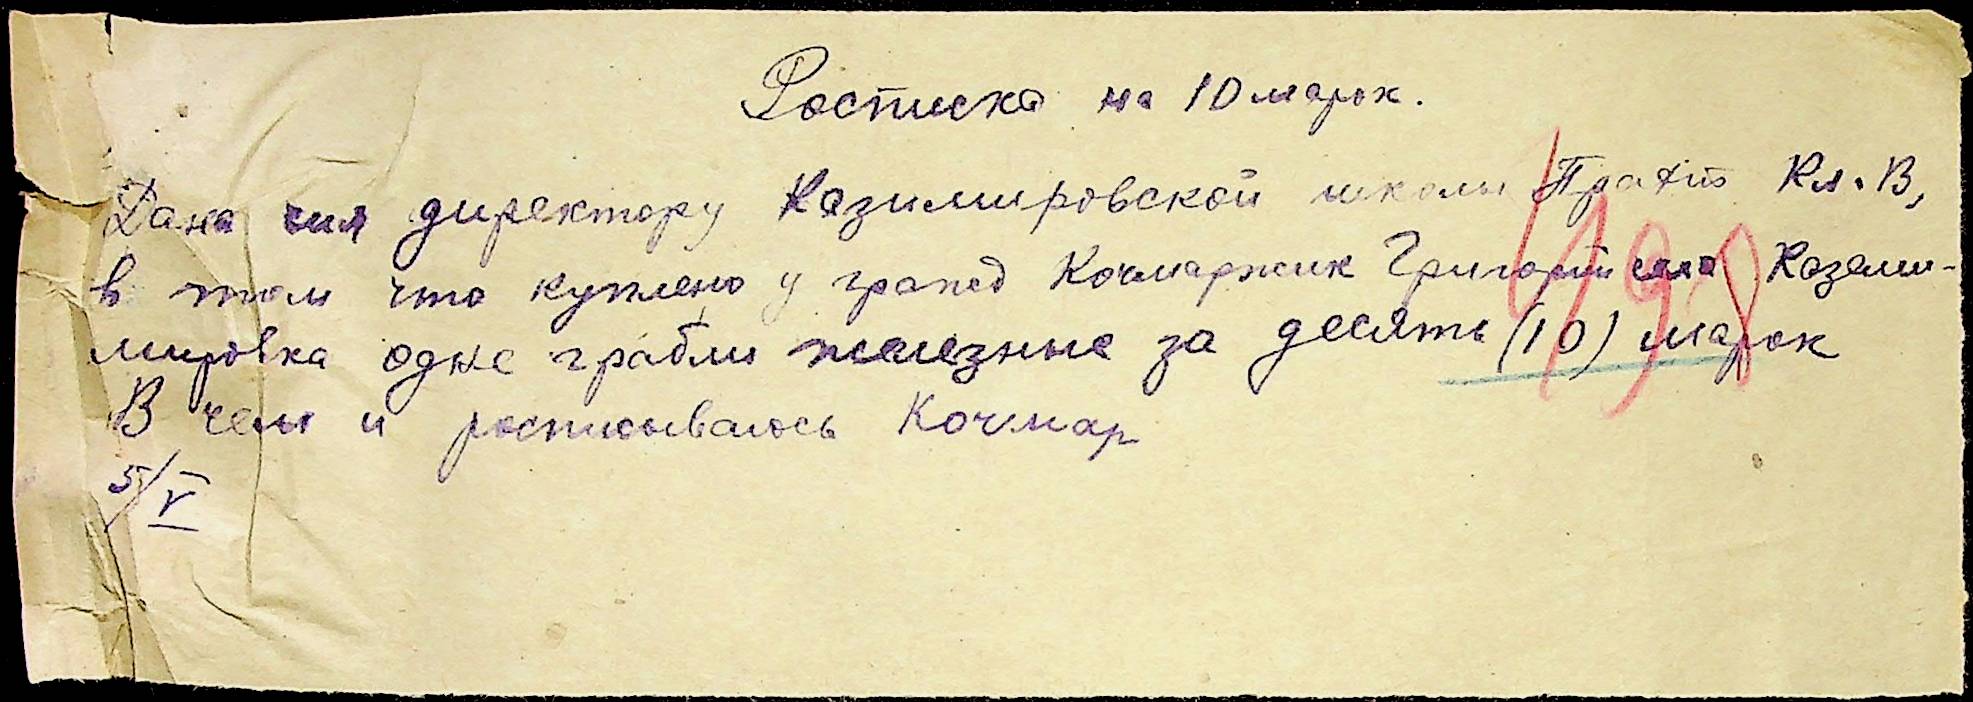 Росписка на 10 марок.
Дана сия директору Казимировской школы Кл. В,
в том что куплено у гражд Кочмаржик Григорий села Каземи-
мировка одне грабли железные за десять (10) марок
В чем и росписываюсь Кочмар
5/V